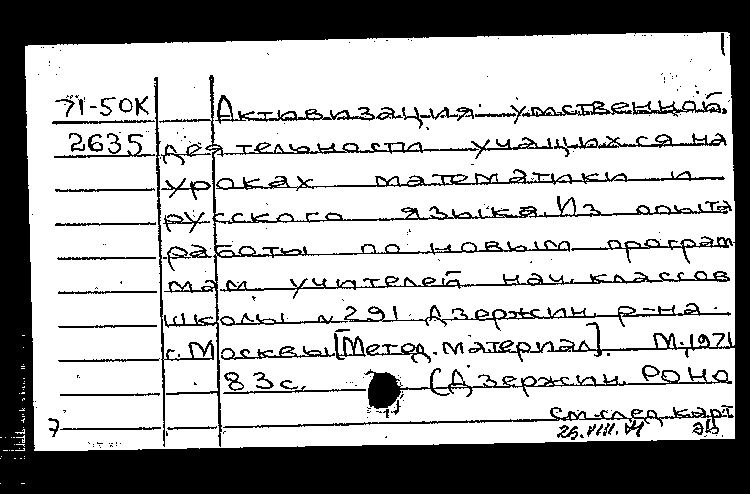 71-50К Активизация умственной
2635 деятельности учащихся на
уроках математики и
русского языка. Из опыта
работы по новым програм
мам учителей нач. классов
школы №291 Дзержин. р-на
г. Москвы [Метод. материал]. М., 1971
83 с. (Дзержин. РОНО
см. след. карт
7